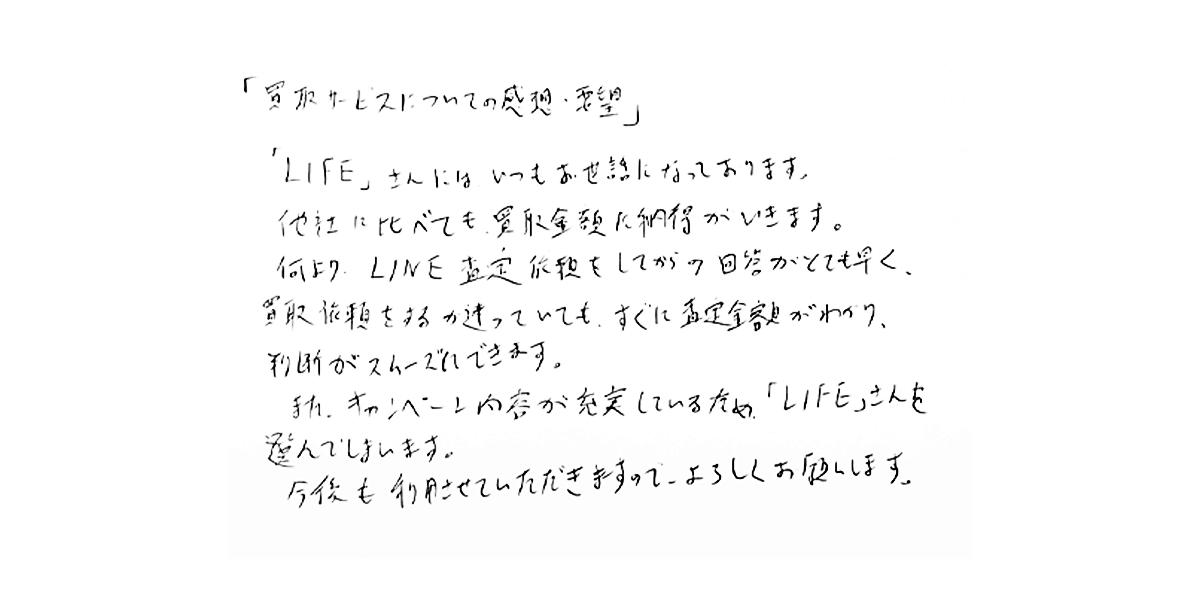 「買取サービスについての感想・要望」
「LIFE」さんには、いつもお世話になっております。
他社に比べても、買取金額に納得がいきます。
何より、LINE査定依頼をしてからの回答がとても早く、
買取依頼をするか迷っていても、すぐに査定金額がわかり、
判断がスムーズにできます。
また、キャンペーン内容が充実しているため、「LIFE」さんを
選んでしまいます。
今後も利用させていただきますので、よろしくお願いします。